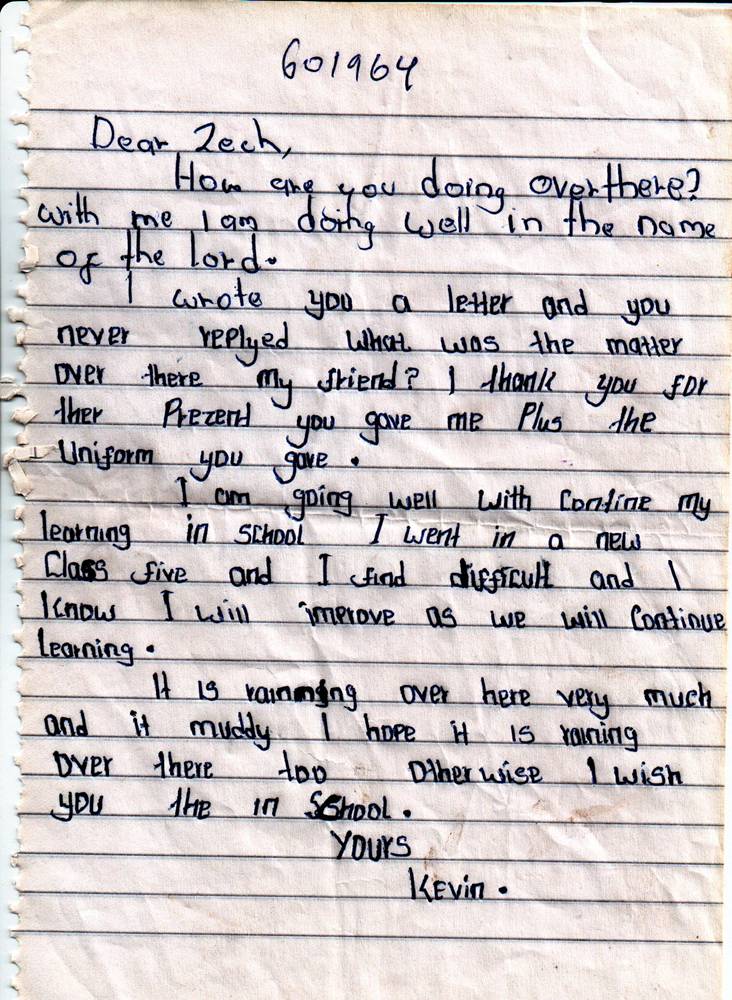 601964
Dear Zech,
How are you doing overthere?
with me I am doing well in the name
of the lord.
I wrote you a letter and you
never replyed what was the matter
over there my friend? I thank you for
ther Prezend you gave me Plus the
Uniform you gave.
I am going well with Contine my
learning in school I went in a new
Class five and I find difficult and I
Know I will improve as we will Continue
learning.
It is rainning over here very much
and it muddy I hope it is raining
over there too Otherwise I wish
you the in School.
Yours
Kevin.